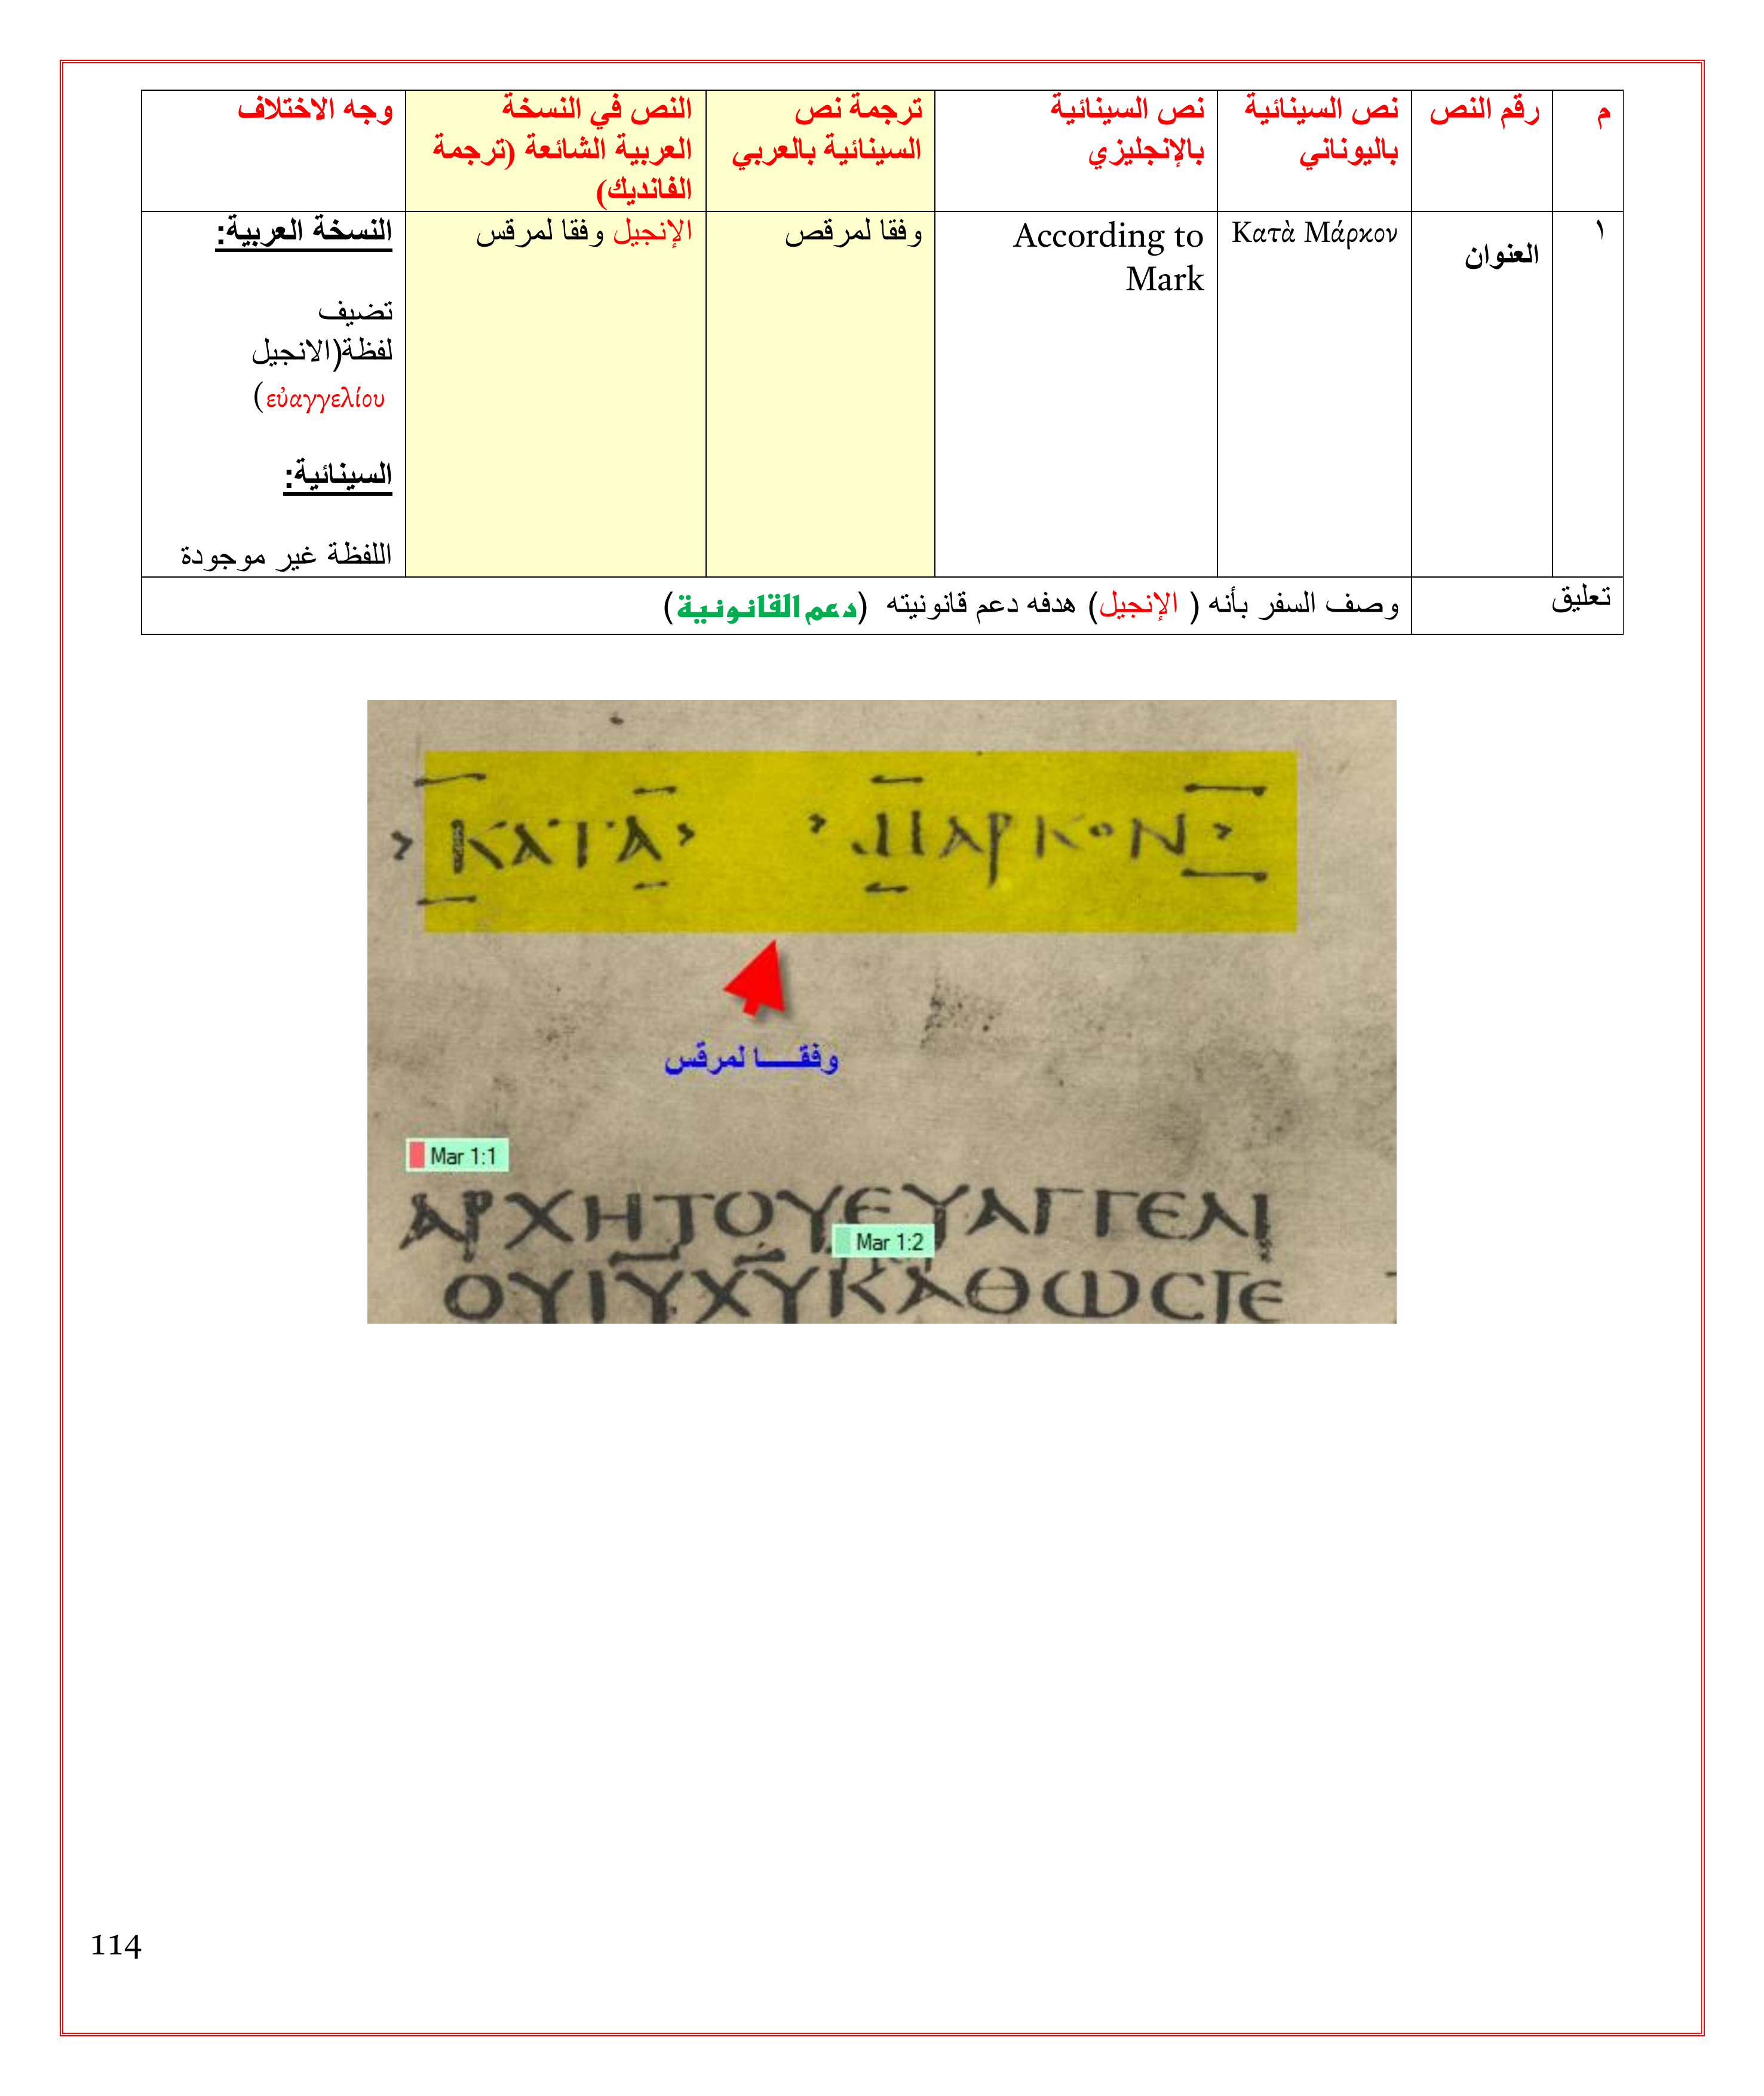 م
رقم النص
نص السينائية
باليوناني
نص السينائية
بالإنجليزي
ترجمة نص
السينائية بالعربي
النص في النسخة
العربية الشائعة (ترجمة
الفانديك)
وجه الاختلاف
١
العنوان
Κατὰ Μάρκον
According to
Mark
وفقا لمرقص
الإنجيل وفقا لمرقس
النسخة العربية:
تضيف
لفظة(الانجيل
εὐαγγελίου)
السينائية:
اللفظة غير موجودة
تعليق
وصف السفر بأنه ( الإنجيل) هدفه دعم قانونيته (دعم القانونية)
›ΚΑΤΑ› ›ΜΑΡΚΟΝ›
وفقـــا لمرقس
Mar 1:1
ΑΡΧΗΤΟΥΕΥΑΓΓΕΛΙ
Mar 1:2
ΟΥΙΥΧΥΚΑΘΩCΓΕ
114